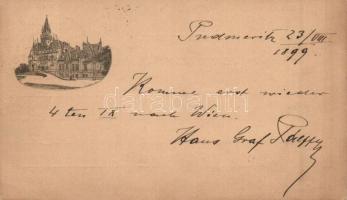 Pudmeritz 23/VIII
1899.
Komme erst wieder
4 ten IX nach Wien.
Hans Graf Pálffy